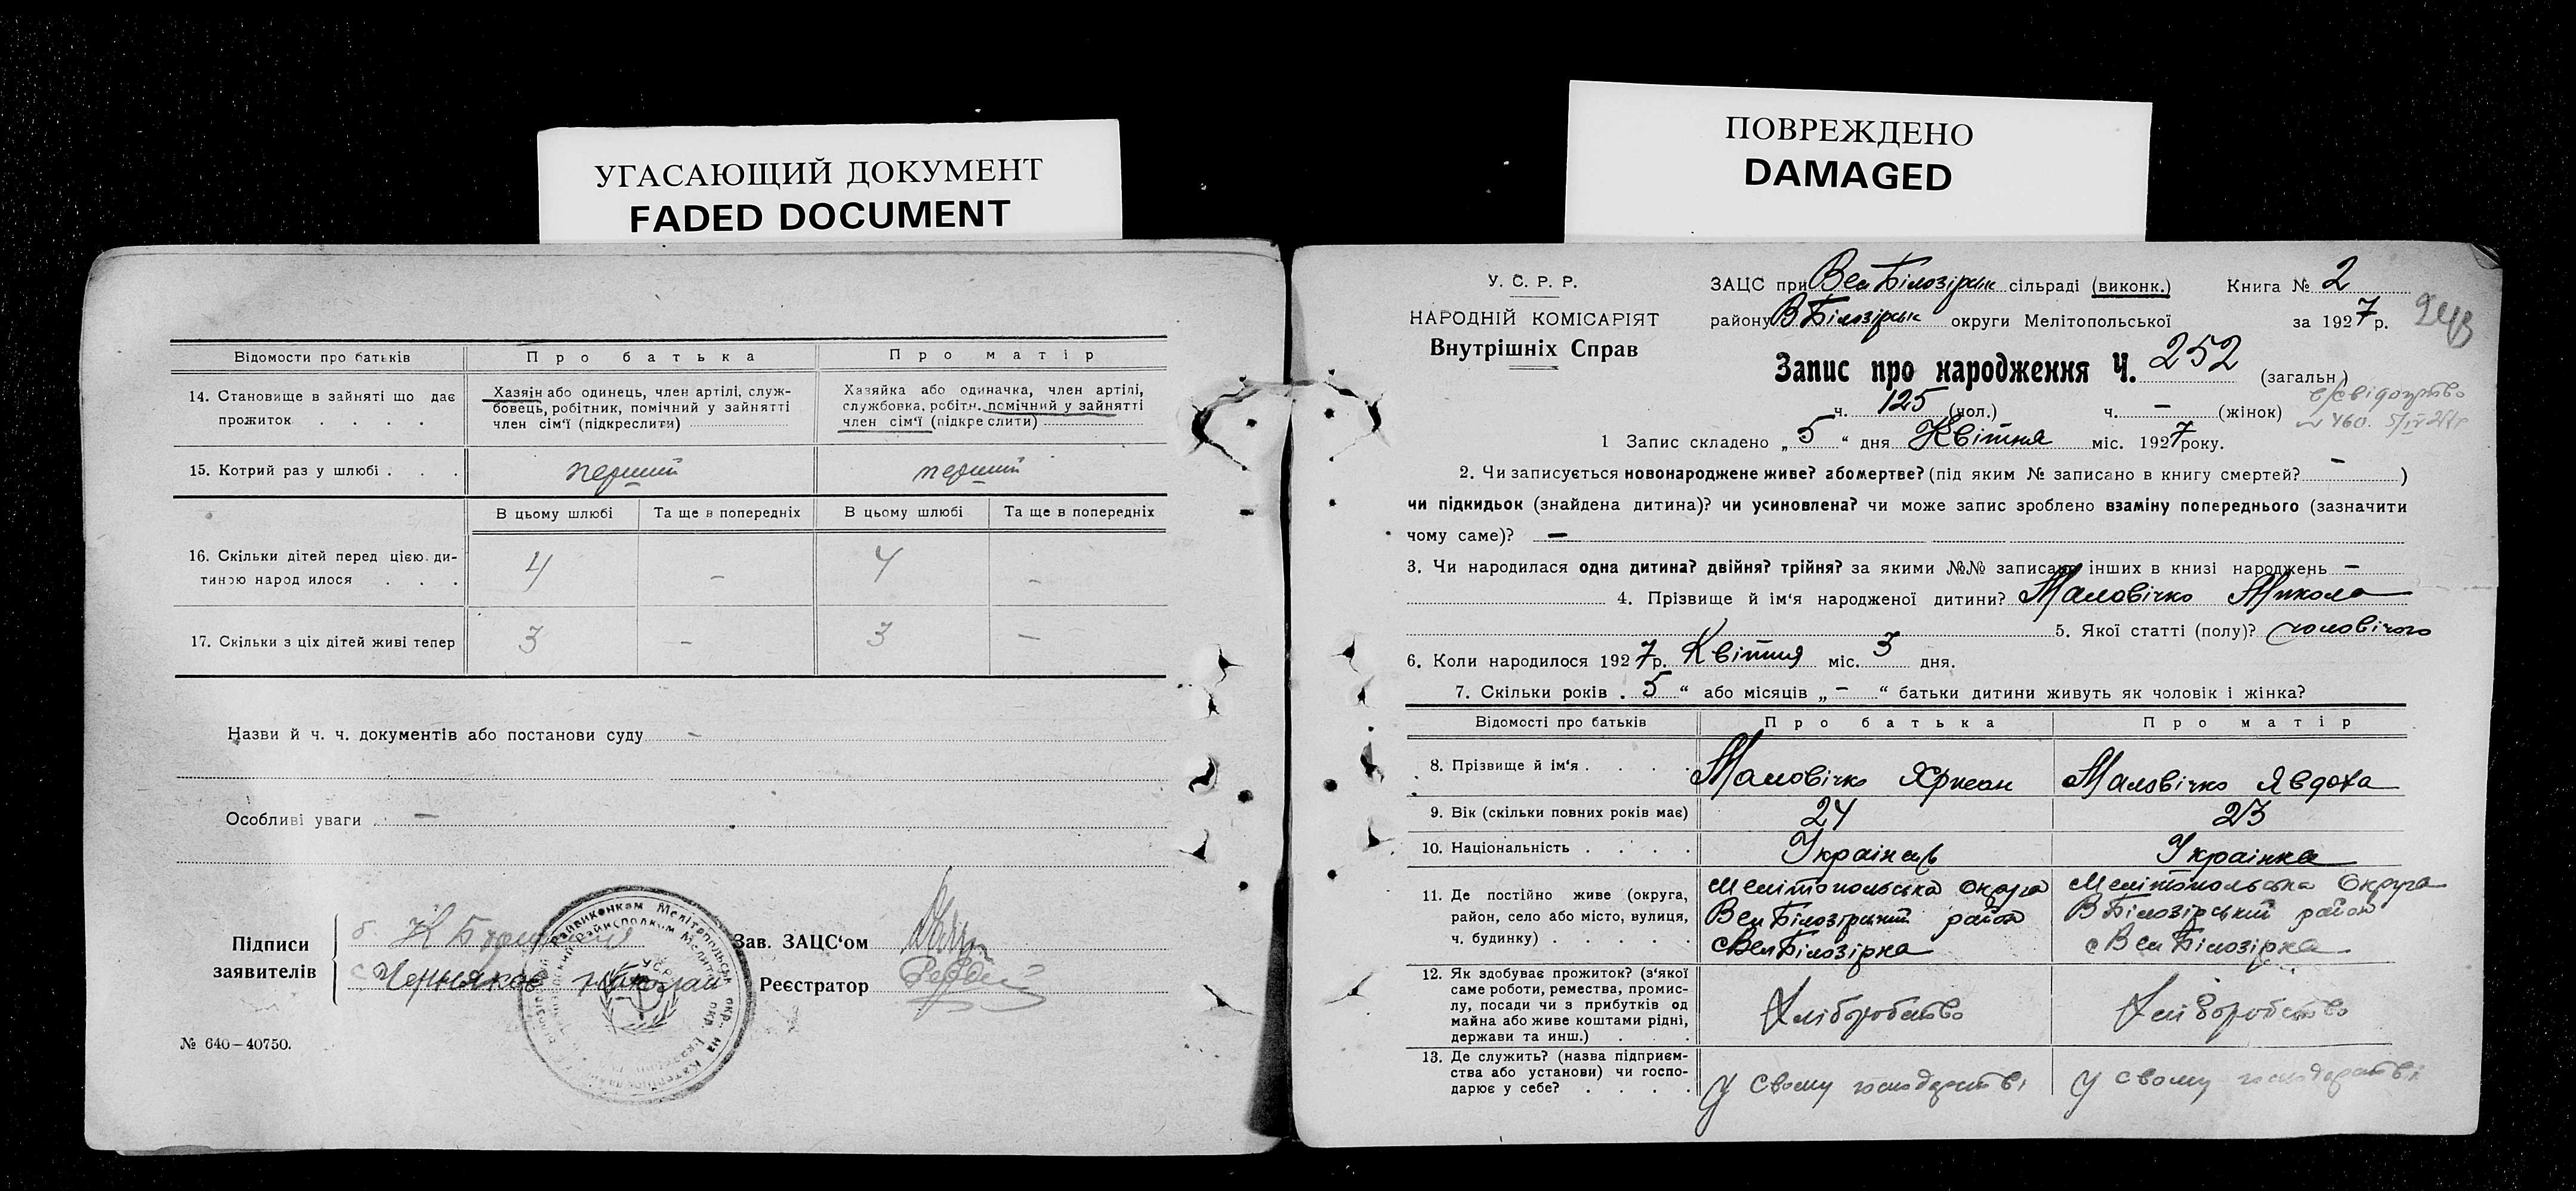 УГАСАЮЩИЙ ДОКУМЕНТ
FADED DOCUMENT
Відомости про батьків
Про батька
Про матір
14. Становище в зайняті що дає прожиток . . . .
Хазяін або одинець, член артілі, служ-
бовець, робітник, помічний у зайнятті
член сім'ї (підкреслити)
Хазяйка або одиначка, член артілі,
службовка, робітн. помічний у зайнятті
член сім'ї (підкреслити)
15. Котрий раз у шлюбі . . .
перший
перший
В цьому шлюбі
Та ще в попередніх
В цьому шлюбі
Та ще в попередніх
16. Скільки дітей перед цією ди-
тиною народилося . . .
4 - 4 -
17. Скільки з ціх дітей живі тепер
3 - 3 -
Назви й ч. ч. документів або постанови суду -
Особливі уваги -
Підписи
заявителів
Черняков Николай
Зав. ЗАЦС'ом
Реєстратор
№ 640—40750.
ПОВРЕЖДЕНО
DAMAGED
У. С. Р. Р.
НАРОДНІЙ КОМІСАРІЯТ
Внутрішніх Справ
ЗАЦС при Вел Білозірськ сільраді (виконк.) Книга № 2
району В Білозірськ округи Мелітопольської за 1927 р.
Запис про народження Ч. 252 (загальн.)
ч. 125 (чол.) ч. — (жінок)
1 Запис складено „ 5 “ дня Квітня міс. 1927 року.
2. Чи записується новонароджене живе? або мертве? (під яким № записано в книгу смертей? - )
чи підкидьок (знайдена дитина)? чи усиновлена? чи може запис зроблено взаміну попереднього (зазначити
чому саме)? —
3. Чи народилася одна дитина? двійня? трійня? за якими №№ записано інших в книзі народжень -
4. Прізвище й ім'я народженої дитини? Маловічко Микола
5. Якої статті (полу)? чоловічого
6. Коли народилося 1927 р. Квітня міс. 3 дня.
7. Скільки років . 5 “ або місяців „ - “ батьки дитини живуть як чоловік і жінка?
Відомості про батьків
Про батька
Про матір
8. Прізвище й ім'я . . . .
Маловічко
Маловічко Явдоха
9. Вік (скільки повних років має)
24
23
10. Національність . . . .
Українець
Українка
11. Де постійно живе (округа,
район, село або місто, вулиця,
ч. будинку) . . . . .
Мелітопольська Округа
Вел Білозірський район
с Вел Білозірка
Мелітопольська Округа
В Білозірський район
с Вел Білозірка
12. Як здобуває прожиток? (з'якої
саме роботи, ремества, промис-
лу, посади чи з прибутків од
майна або живе коштами рідні,
держави та инш.) . .
Хліборобство
Хліборобство
13. Де служить? (назва підприєм-
ства або установи) чи госпо-
дарює у себе? . . . .
у свому господарстві
у свому господарстві